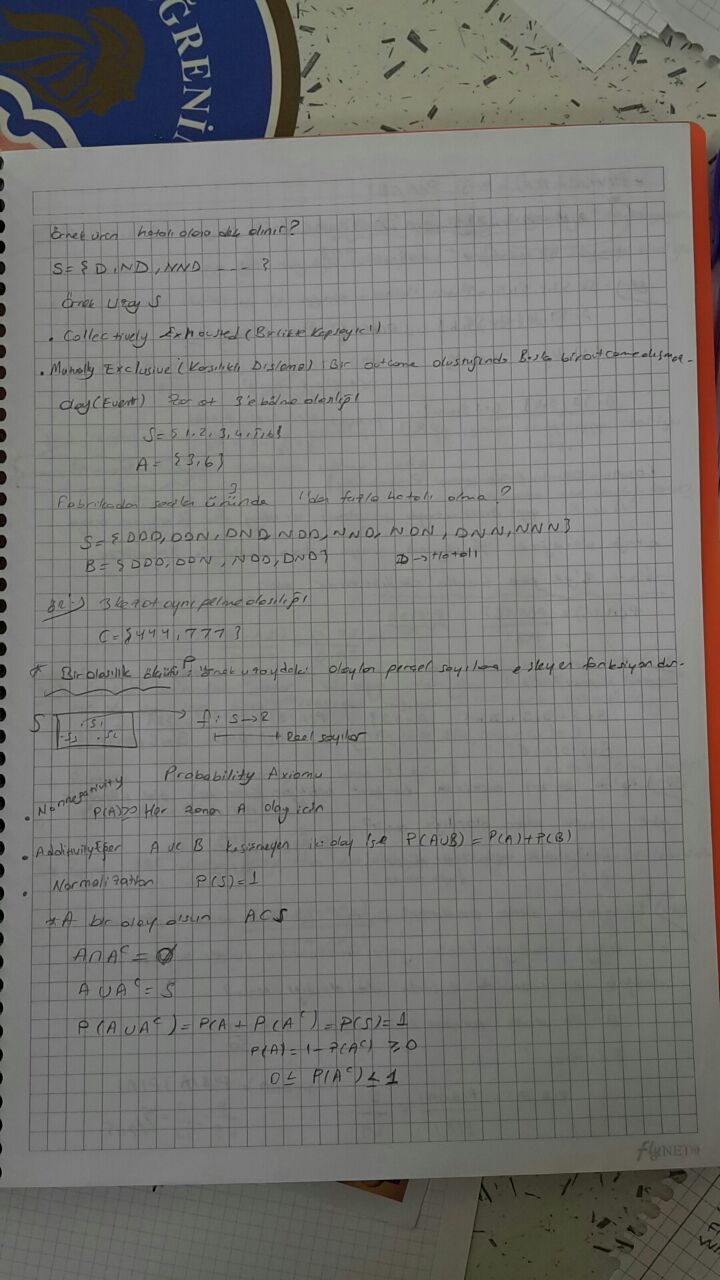 ĞRENİ
Örnek ürün hatalı olana dek alınır?
S={D,ND,NND ---- }
Örnek Uzay S
• Collectively Exhousted (Birlikte Kapsayıcı)
• Mutually Exclusive (Karşılıklı Dışlama) Bir outcome oluştuğunda Başka bir outcome oluşmaz.
Olay (Event) Zar at 3'e bölme olasılığı
S={1,2,3,4,5,6}
A = {3,6}
Fabrikadan seçilen 3 üründe 1'den fazla hatalı olma?
S={DDD, DDN, DND, NDD, NND, NDN, DNN, NNN}
B={DDD, DDN, NDD, DND} D→Hatalı
3 kez at aynı gelme olasılığı
C={444,777}
* Bir olasılık P; örnek uzaydaki olayları gerçel sayılara eşleyen fonksiyondur.
S .S1 .S3 .S2 f: S→R
Reel sayılar
Probability Axiomu
• Nonnegativity P(A)≥0 Her A olay için
• Additivity Eğer A ve B kesişmeyen iki olay ise P(AUB)=P(A)+P(B)
• Normalization P(S)=1
*A bir olay olsun A⊂S
A∩Aᶜ = Ø
A∪Aᶜ = S
P(A∪Aᶜ)=P(A + P(Aᶜ)=P(S)=1
P(A)=1-P(Aᶜ) ≥0
0≤ P(Aᶜ)≤1
flyNET